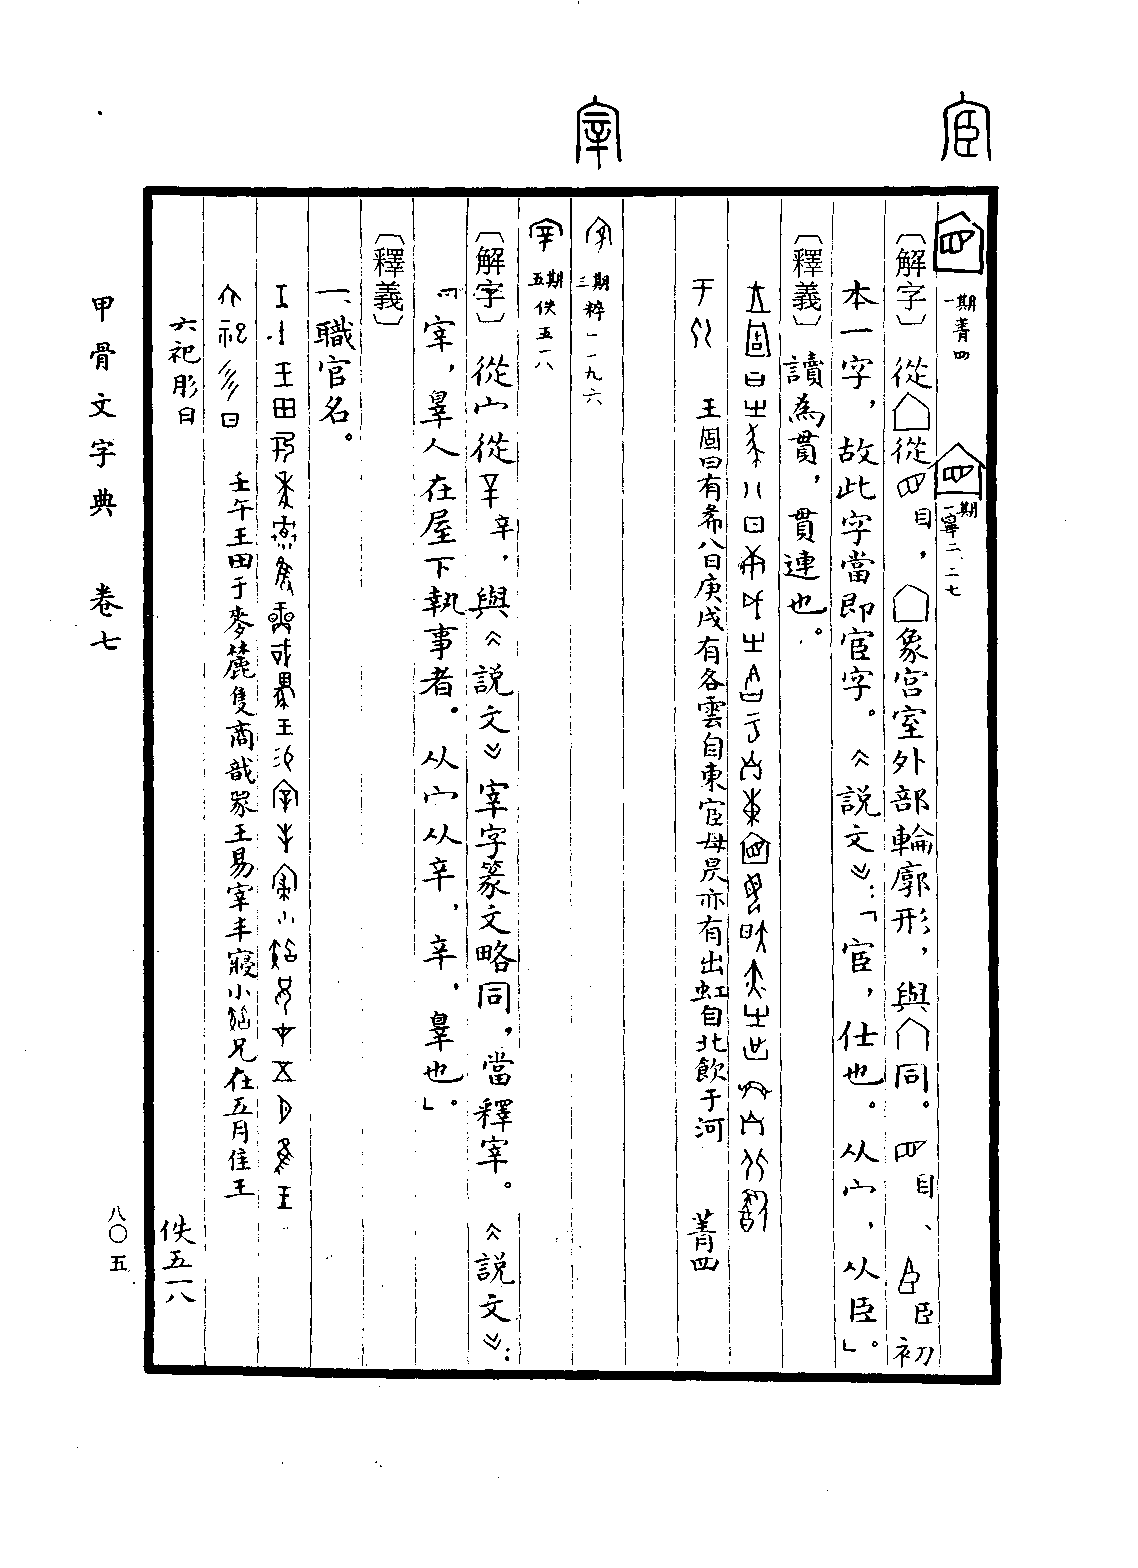 宦
一期菁四
一期寧二、二七
〔解字〕從從目，象宮室外部輪廓形，與同。目、臣初
本一字，故此字當即宦字。《説文》：「宦，仕也。从宀，从臣」。
〔釋義〕讀為貫，貫連也。
王固曰有希八日庚戌有各雲自東宦母昃亦有出虹自北飲于河 菁四
宰
三期粹一一九六
五期佚五一八
〔解字〕從宀從辛，與《説文》宰字篆文略同，當釋宰。《説文》：
「宰，辠人在屋下執事者。从宀从辛，辛，辠也」。
〔釋義〕
一、職官名。
壬午王田于麥麓隻商戠兕王易宰丰寢小兄在五月隹王
六祀肜日 佚五一八
甲骨文字典 卷七
八〇五